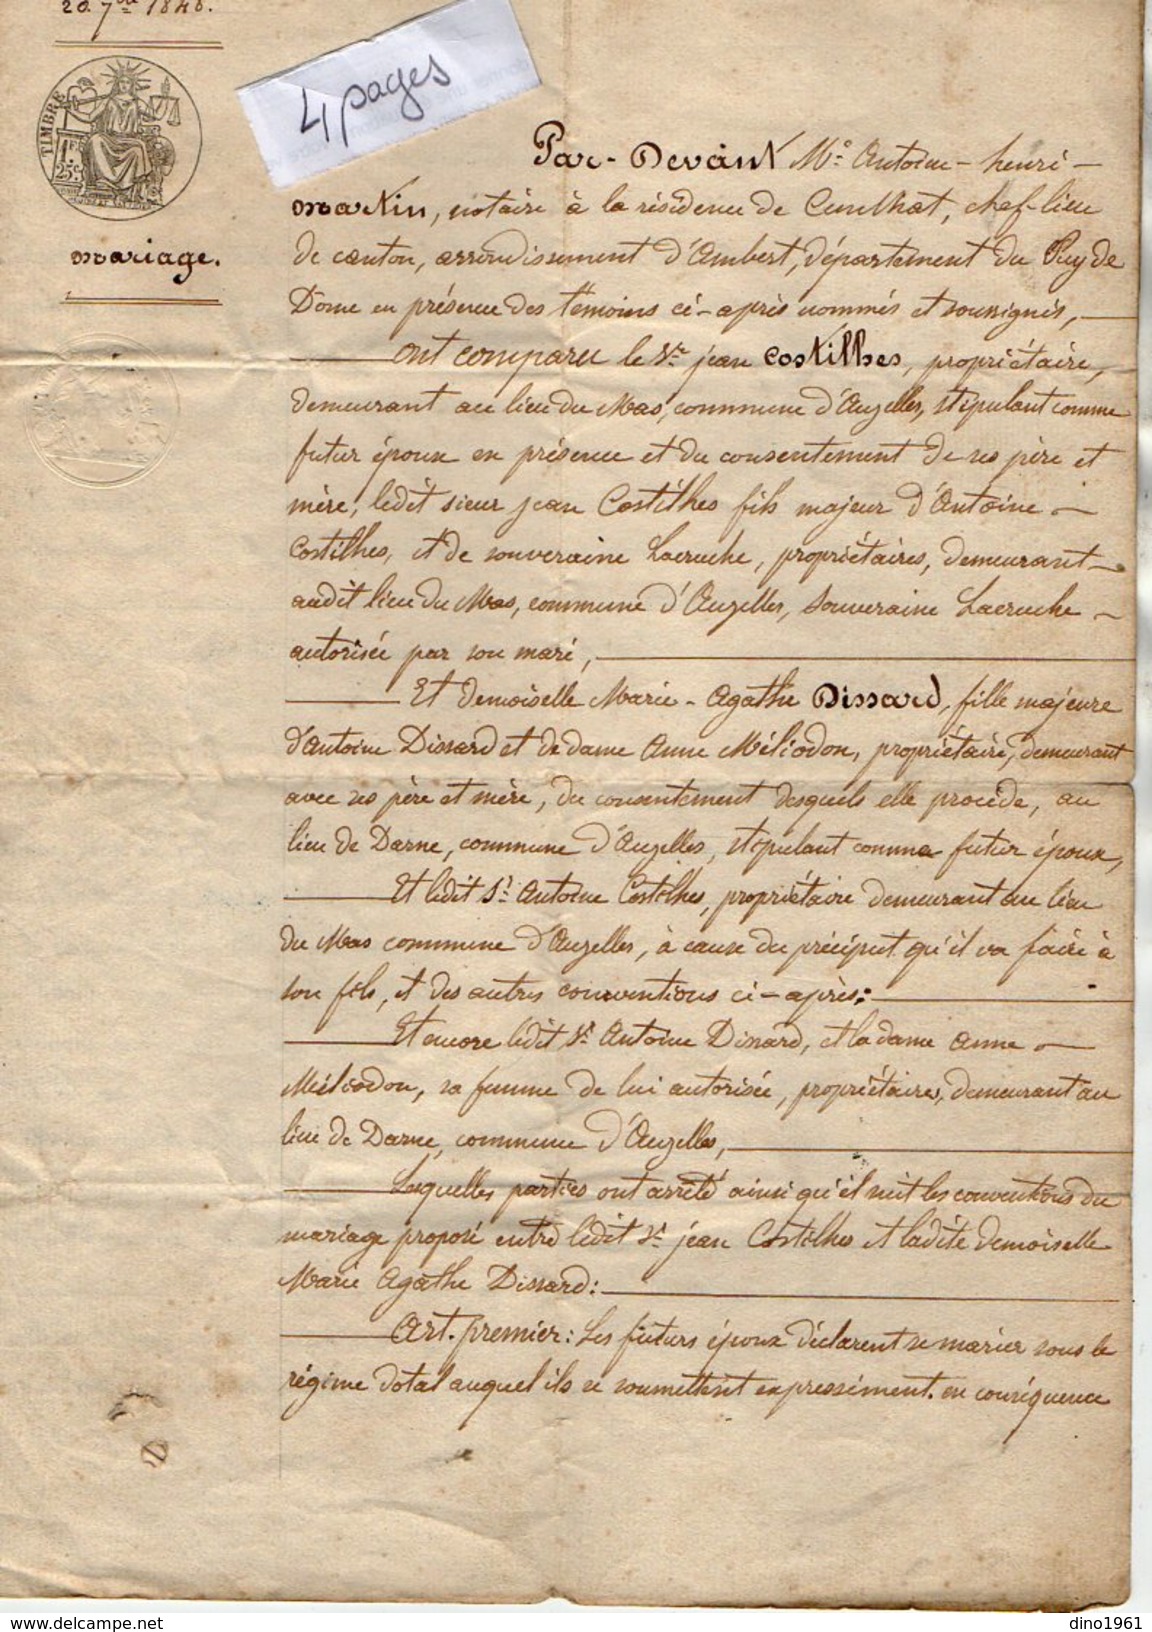 20. 7bre 1848.
4 pages
TIMBRE
1F
25c
mariage.
Par-Devant Me. Antoine-henri-
martin, notaire à la résidence de Cunlhat, chef-lieu
de canton, arrondissement d'Ambert, département du Puy de
Dôme en présence des témoins ci-après nommés et soussignés,
ont comparu le Sr. jean Costilhes, propriétaire,
demeurant au lieu du Mas, commune d'Auzelles, stipulant comme
futur époux en présence et du consentement de ses père et
mère, ledit sieur jean Costilhes fils majeur d'Antoine
Costilhes, et de souveraine Lacruche, propriétaires, demeurant
audit lieu du Mas, commune d'Auzelles, Souveraine Lacruche
autorisée par son mari,
Et demoiselle Marie-Agathe Dissard, fille majeure
d'Antoine Dissard et de dame Anne Méliodon, propriétaire, demeurant
avec ses père et mère, du consentement desquels elle procède, au
lieu de Darne, commune d'Auzelles, stipulant comme futur époux,
Et ledit Sr. Antoine Costilhes, propriétaire demeurant au lieu
du Mas commune d'Auzelles, à cause du préciput qu'il va faire à
son fils, et des autres conventions ci-après:
Et encore ledit Sr. Antoine Dissard, et la dame Anne
Méliodon, sa femme de lui autorisée, propriétaires, demeurant au
lieu de Darne, commune d'Auzelles,
Lesquelles parties ont arrêté ainsi qu'il suit les conventions du
mariage proposé entre ledit Sr. jean Costilhes et ladite demoiselle
Marie Agathe Dissard:
Art. premier: Les futurs époux déclarent se marier sous le
régime dotal auquel ils se soumettent expressément. en conséquence
www.delcampe.net
dino1961